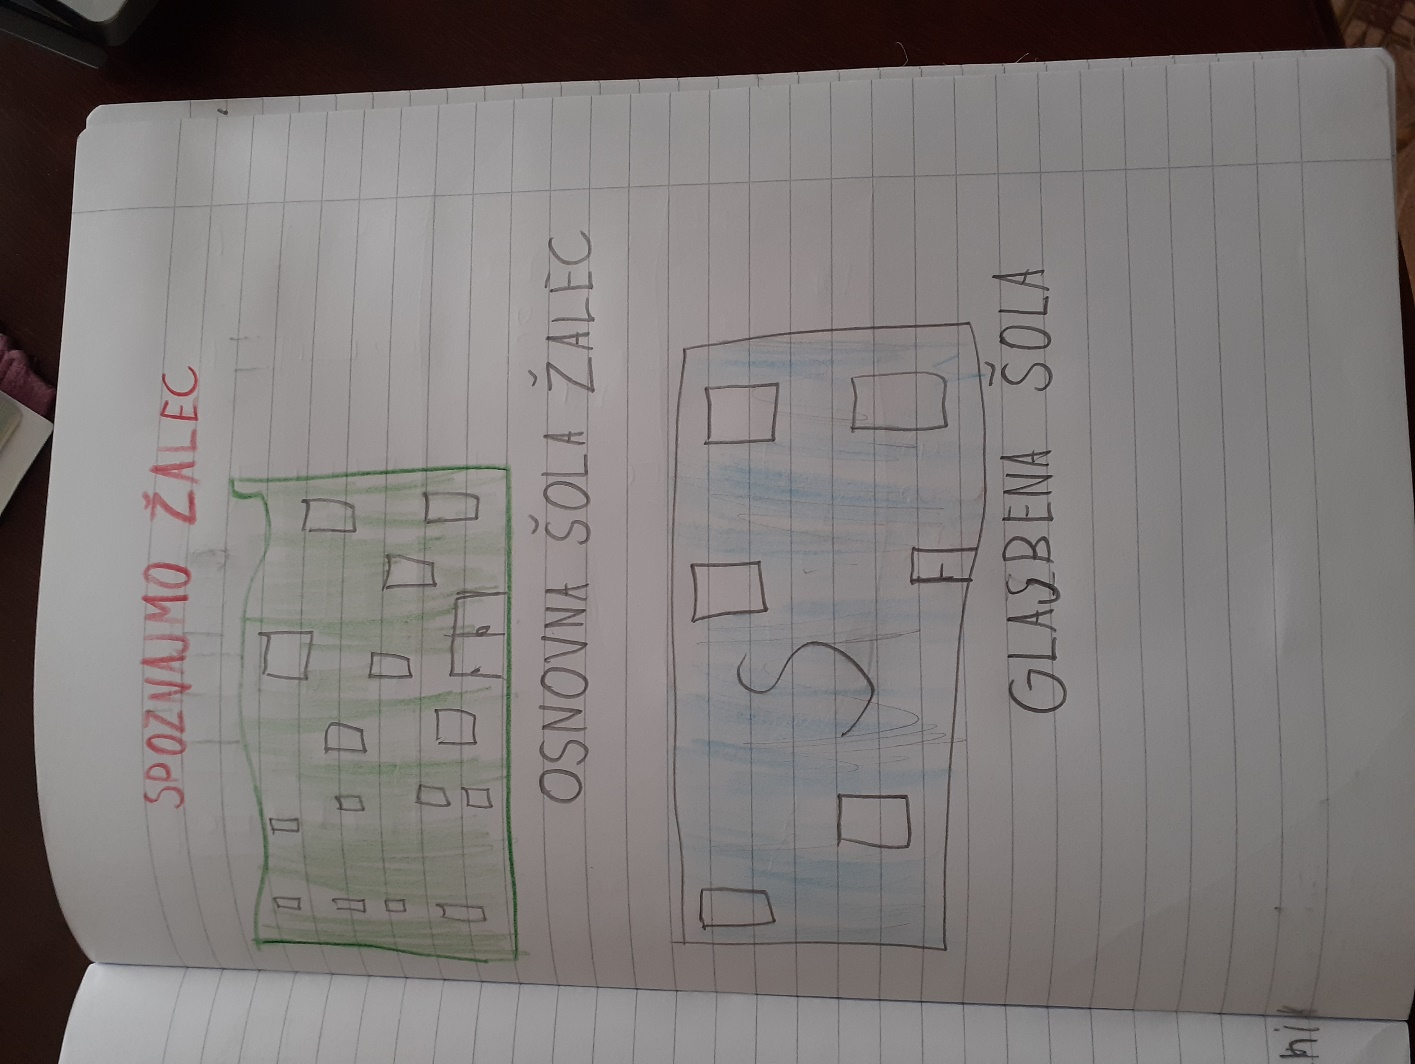 SPOZNAJMO ŽALEC
OSNOVNA ŠOLA ŽALEC
S
GLASBENA ŠOLA